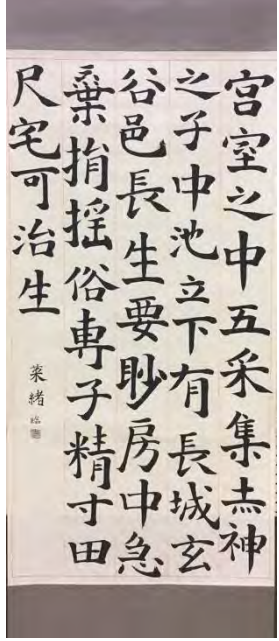 宮室之中五采集赤神
之子中池立下有長城玄
谷邑長生要眇房中急
棄捐揺俗専子精寸田
尺宅可治生
菜緒臨